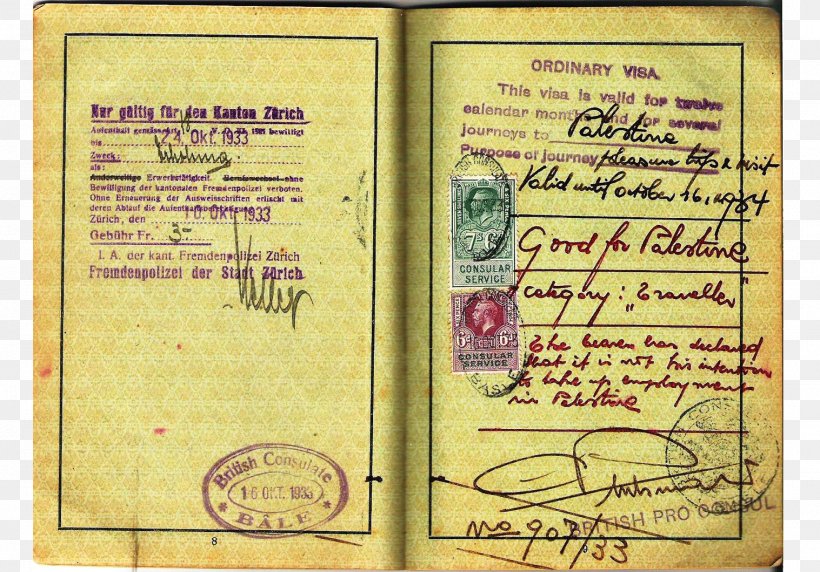 Nur gültig für den Kanton Zürich
Aufenthalt bewilligt
bis 24. Okt. 1933
Zweck:
als:
Anderweitige Erwerbstätigkeit. Berufswechsel ohne
Bewilligung der kantonalen Fremdenpolizei verboten.
Ohne Erneuerung der Ausweisschriften erlischt mit
deren Ablauf die
Zürich, den 10. Okt. 1933
Gebühr Fr. 3.-
I. A. der kant. Fremdenpolizei Zürich
Fremdenpolizei der Stadt Zürich
British Consulate
16 OKT. 1933
BÂLE
8
ORDINARY VISA.
This visa is valid for twelve
calendar months and for several
journeys to Palestine
Purpose of journey pleasure trip & visit
Valid until October 16, 1934
7/6
CONSULAR
SERVICE
6d 6d
CONSULAR
SERVICE
BASLE
Good for Palestine
category: „Traveller"
The bearer has declared
that it is not his intention
to take up employment
in Palestine
BRITISH PRO CONSUL
No 907/33